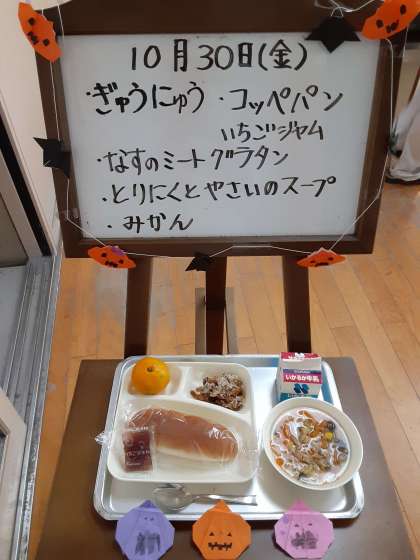 10月30日(金)
・ぎゅうにゅう ・コッペパン
いちごジャム
・なすのミートグラタン
・とりにくとやさいのスープ
・みかん
いかるが牛乳